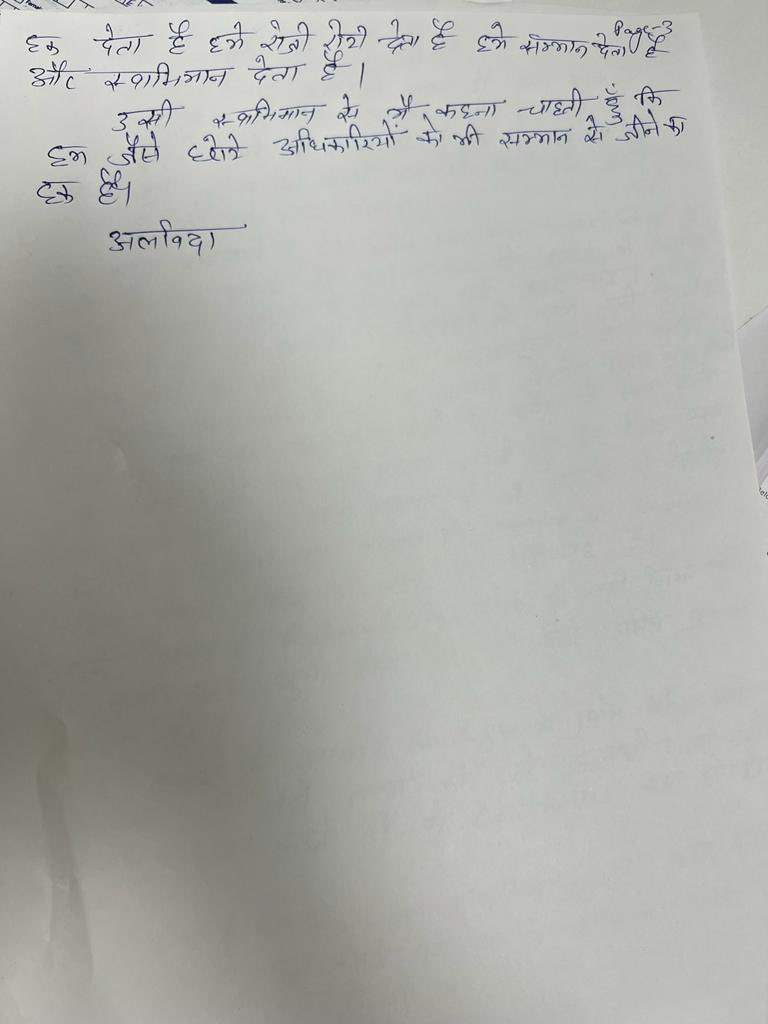 Page-3
हक देता है हमे रोजी रोटी देता है हमे सम्मान देता है
और स्वाभिमान देता है।
उसी स्वाभिमान से मैं कहना चाहती हूँ कि
हम जैसे छोटे अधिकारियों को भी सम्मान से जीने का
हक है।
अलविदा